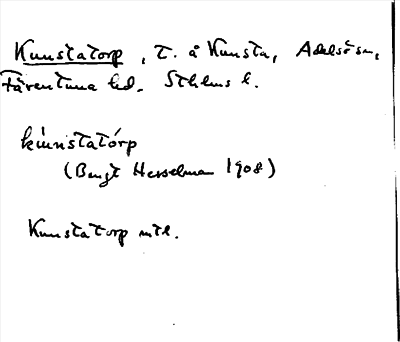 Kunstatorp, t. å Kunsta, Adelsö sn,
Färentuna hd. Sthlms l.
kúnstatórp
(Bengt Hesselman 1908)
Kunstatorp mtl.